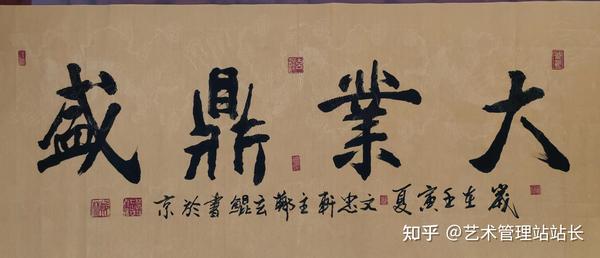 大業鼎盛
歲在壬寅夏文忠軒主鄭玄鯤書於京
知乎 @艺术管理站站长